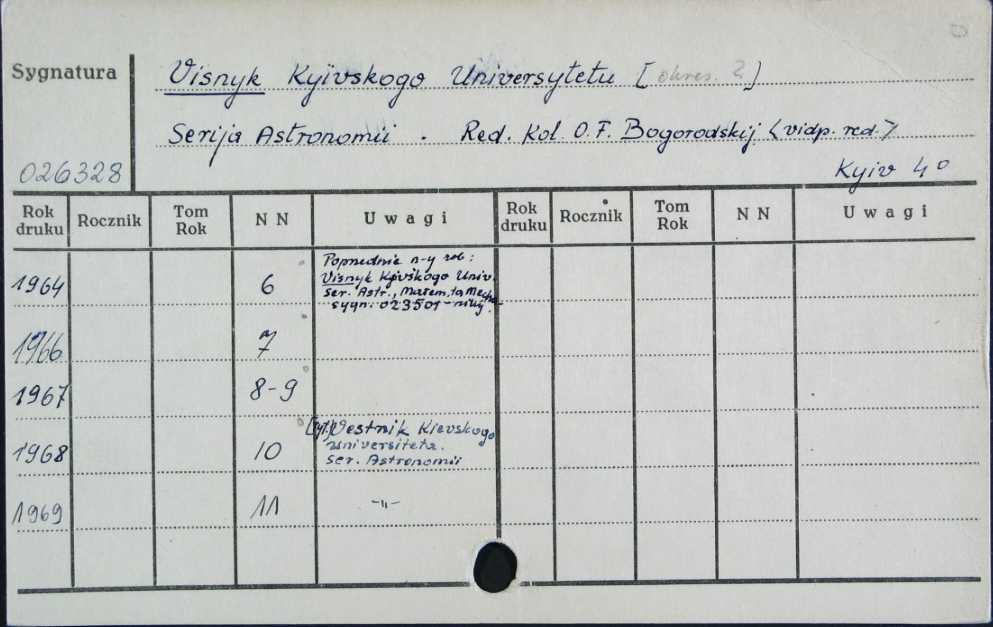 Sygnatura
Visnyk Kyïvskogo Universytetu [okres. 2]
Serija Astronomii . Red. Kol. O.F. Bogorodskij <vidp. red.>
026328
Kyïv 4°
Rok druku Rocznik Tom Rok N N Uwagi Rok druku Rocznik Tom Rok N N Uwagi
Poprzednie n-y zob:
Visnyk Kyivskogo Univ.
1964 6 Ser. Astr., Matem. ta Mech.
sygn. 023501
1966 7
1967 8-9
Vestnik Kievskogo
Universiteta.
1968 10
Ser. Astronomii
1969 11 -"-